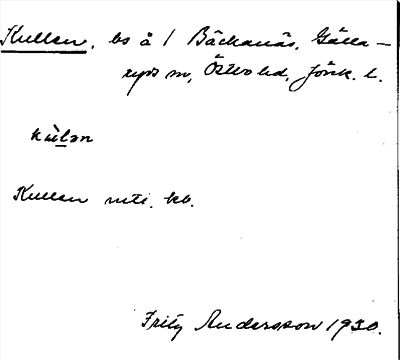 Kullen, bs å 1 Bäckanäs, Gälla-
ryds sn, Östbo hd, Jönk. l.
kùlən
Kullen mtl. kb.
Fritz Andersson 1930.